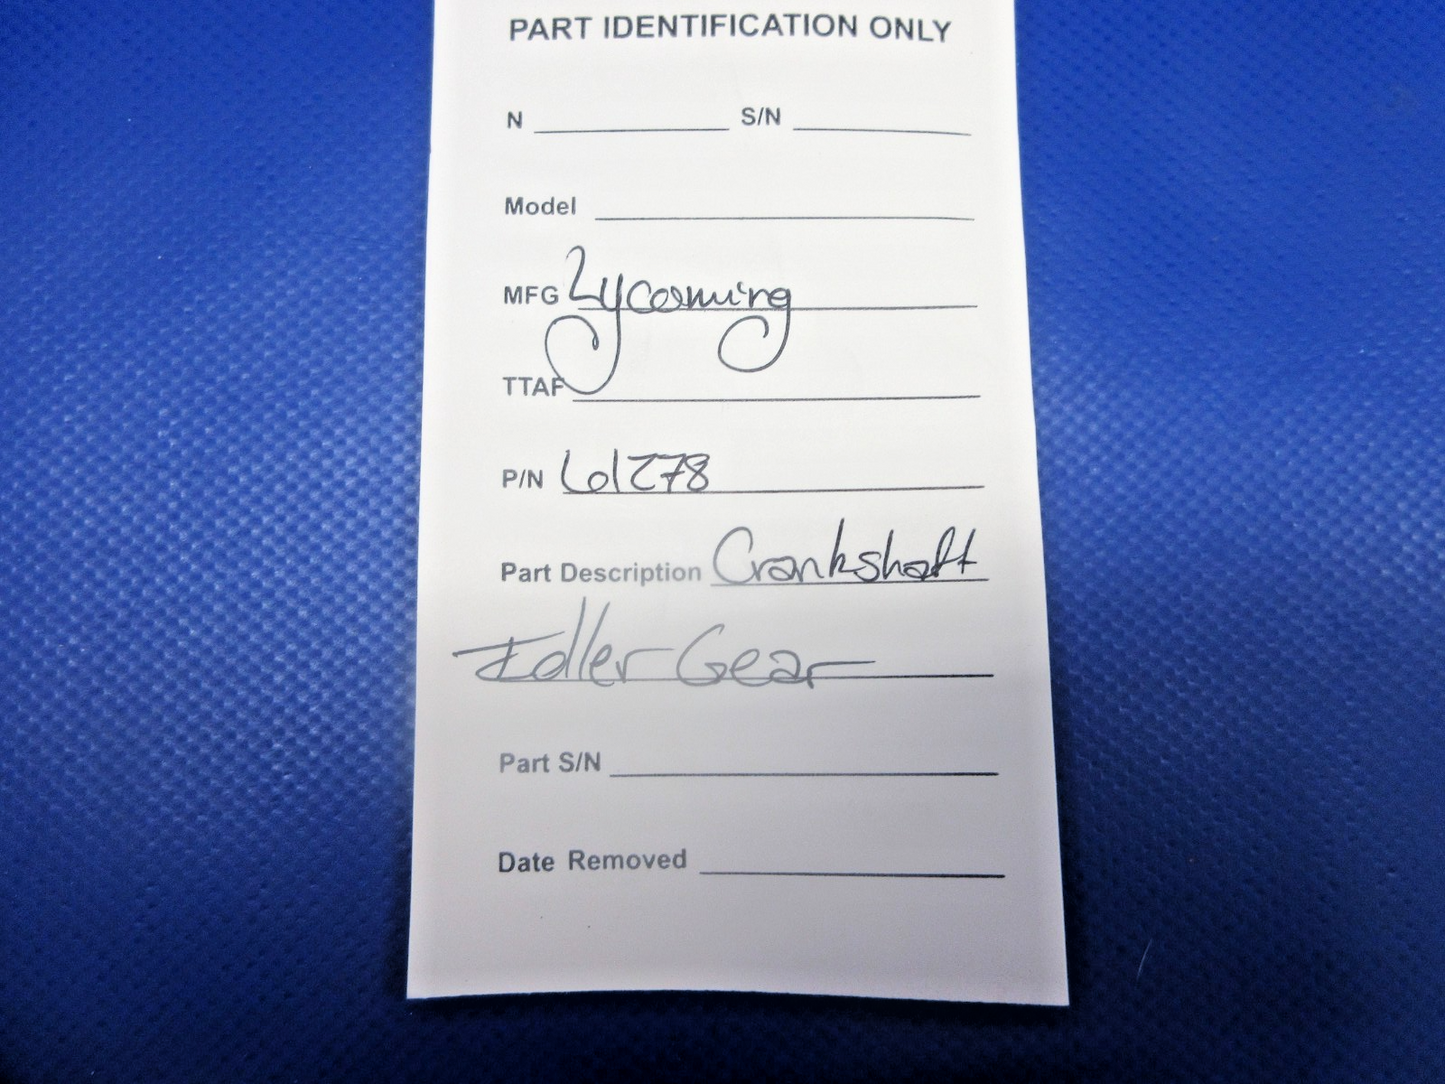 PART IDENTIFICATION ONLY
N S/N
Model
MFG Lycoming
TTAF
P/N 61278
Part Description Crankshaft
Idler Gear
Part S/N
Date Removed